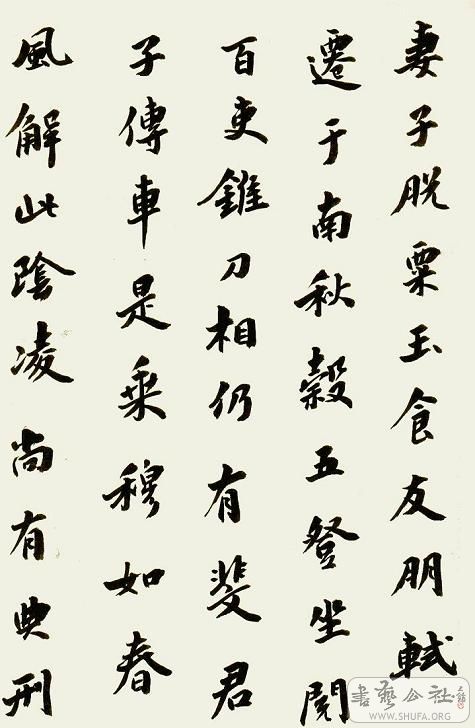 妻子脫粟玉食友朋軾
遷于南秋穀五登坐閱
百吏錐刀相仍有斐君
子傳車是乘穆如春
風解此陰凌尚有典刑
書藝公社
WWW.SHUFA.ORG